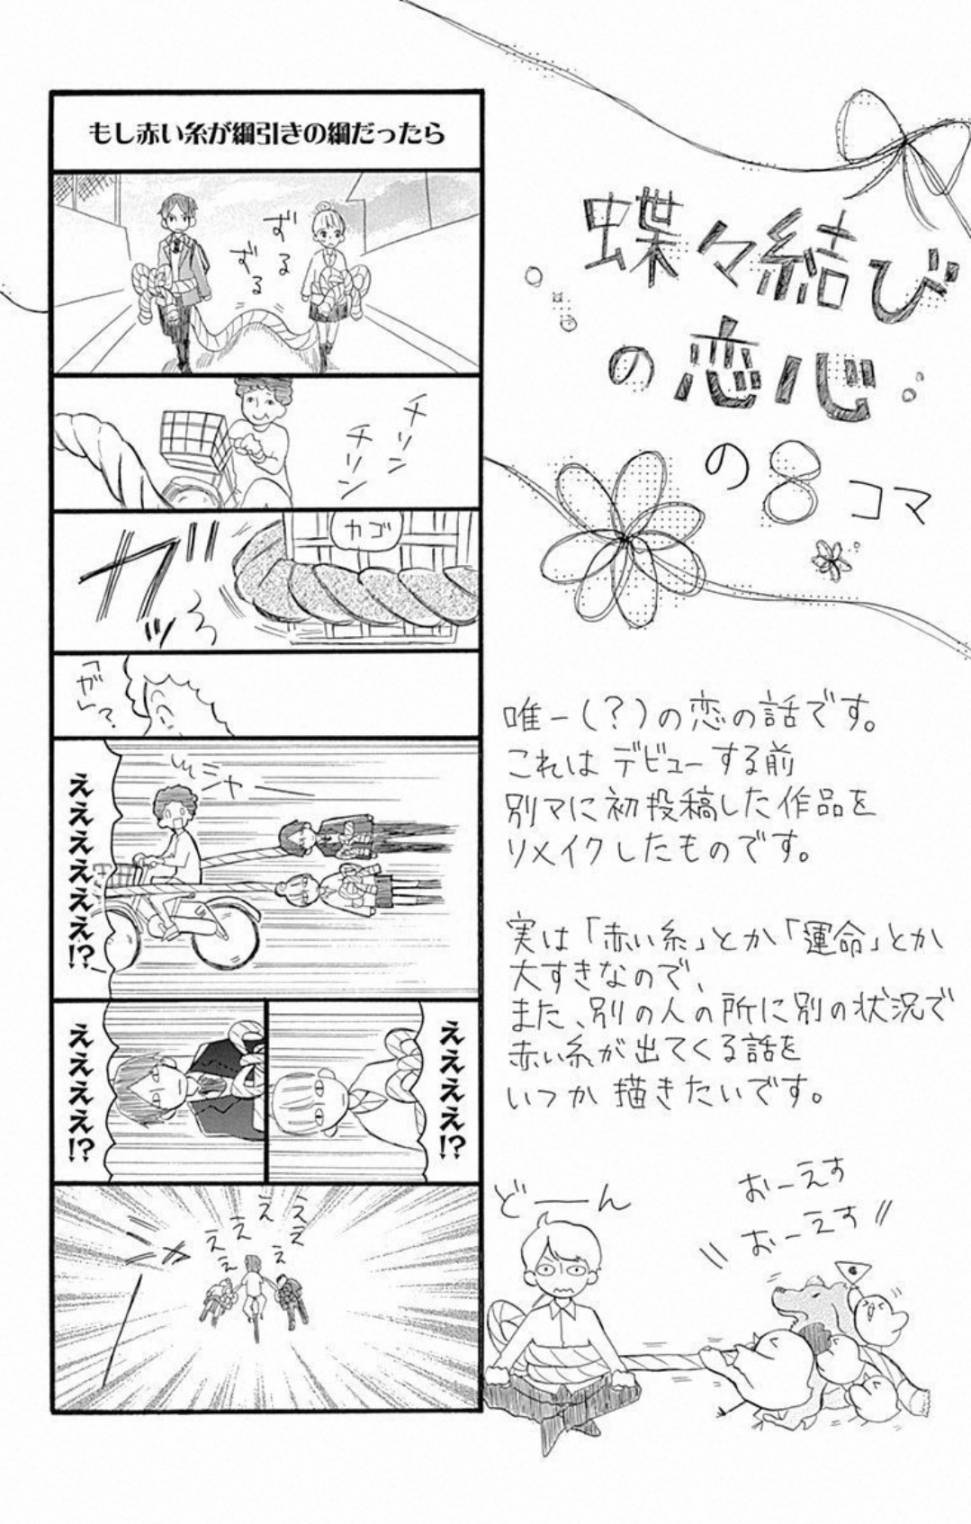 蝶々結び
の恋心
の8コマ
唯一(?)の恋の話です。
これはデビューする前
別マに初投稿した作品を
リメイクしたものです。
実は「赤い糸」とか「運命」とか
大すきなので、
また、別の人の所に別の状況で
赤い糸が出てくる話を
いつか描きたいです。
どーん
おーえす
おーえす
もし赤い糸が綱引きの綱だったら
ずる
ずる
チリン
チリン
カゴ
ガッ
「ガッ」?
シャー
ええええええええ!?
えええええ!?
えええええ!?
ええ
え
え
え
え